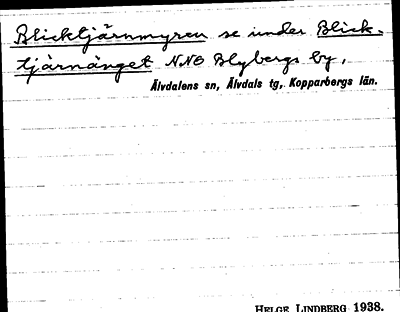 Blicktjärnmyren se under Blick-
tjärnänget NNO Blybergs by,
Älvdalens sn, Älvdals tg, Kopparbergs län.
HELGE LINDBERG 1938.